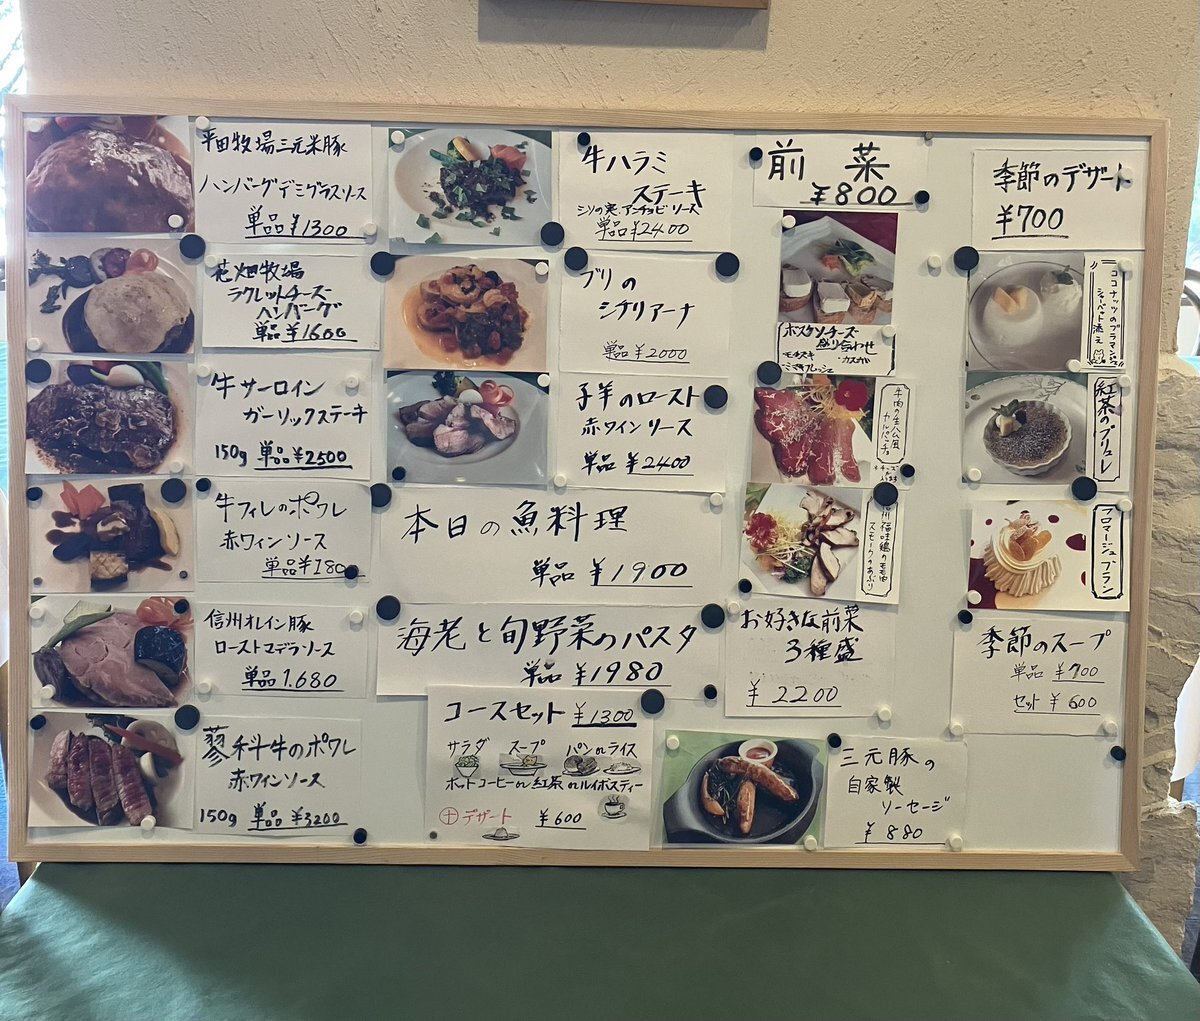 平田牧場三元米豚
ハンバーグデミグラスソース
単品 ¥1300
花畑牧場
ラクレットチーズ
ハンバーグ
単品 ¥1600
牛サーロイン
ガーリックステーキ
150g 単品 ¥2500
牛フィレのポワレ
赤ワインソース
単品 ¥180
信州オレイン豚
ローストマデラソース
単品 1.680
蓼科牛のポワレ
赤ワインソース
150g 単品 ¥3200
牛ハラミ
ステーキ
シソの実、アンチョビソース
単品 ¥2400
ブリの
シチリアーナ
単品 ¥2000
子羊のロースト
赤ワインソース
単品 ¥2400
本日の魚料理
単品 ¥1900
海老と旬野菜のパスタ
単品 ¥1980
コースセット ¥1300
サラダ スープ パン or ライス
ホットコーヒー or 紅茶 or ルイボスティー
㊉ デザート ¥600
前菜
¥800
ボスケソチーズ
盛り合わせ
モチヅキ カスガ
こまきフレッシュ
牛肉の生ハム風
カルパッチョ
州福味鶏のモモ肉
スモークのあぶり
お好きな前菜
3種盛
¥2200
三元豚の
自家製
ソーセージ
¥880
季節のデザート
¥700
ココナッツのブラマンジェ
シャーベット添え
紅茶のブリュレ
フロマージュブラン
季節のスープ
単品 ¥700
セット ¥600